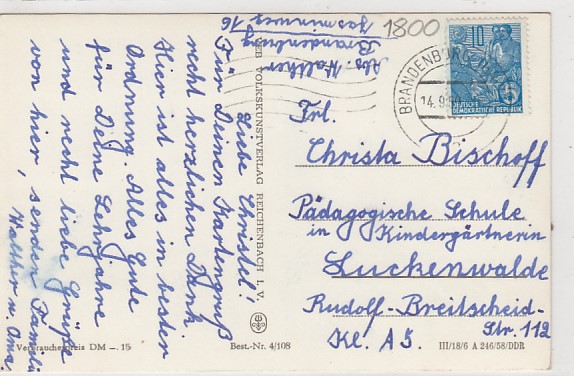 Abs. Walther
Brandenburg
Jasminweg 16
1800
Liebe Christel!
Für Deinen Kartengruß
recht herzlichen Dank
Hier ist alles in bester
Ordnung. Alles Gute
für Deine Lehrjahre
und recht liebe Grüße
von hier, senden Familie
Walther u. Oma.
VEB VOLKSKUNSTVERLAG REICHENBACH I. V.
10
DEUTSCHE
DEMOKRATISCHE REPUBLIK
5
BRANDENBURG
14.9
Frl.
Christa Bischoff
Pädagogische Schule
in Kindergärtnerin
Luckenwalde
Rudolf-Breitscheid-
Str. 112
Kl. A5.
Verbraucherpreis DM —.15
Best.-Nr. 4/108
III/18/6 A 246/58/DDR